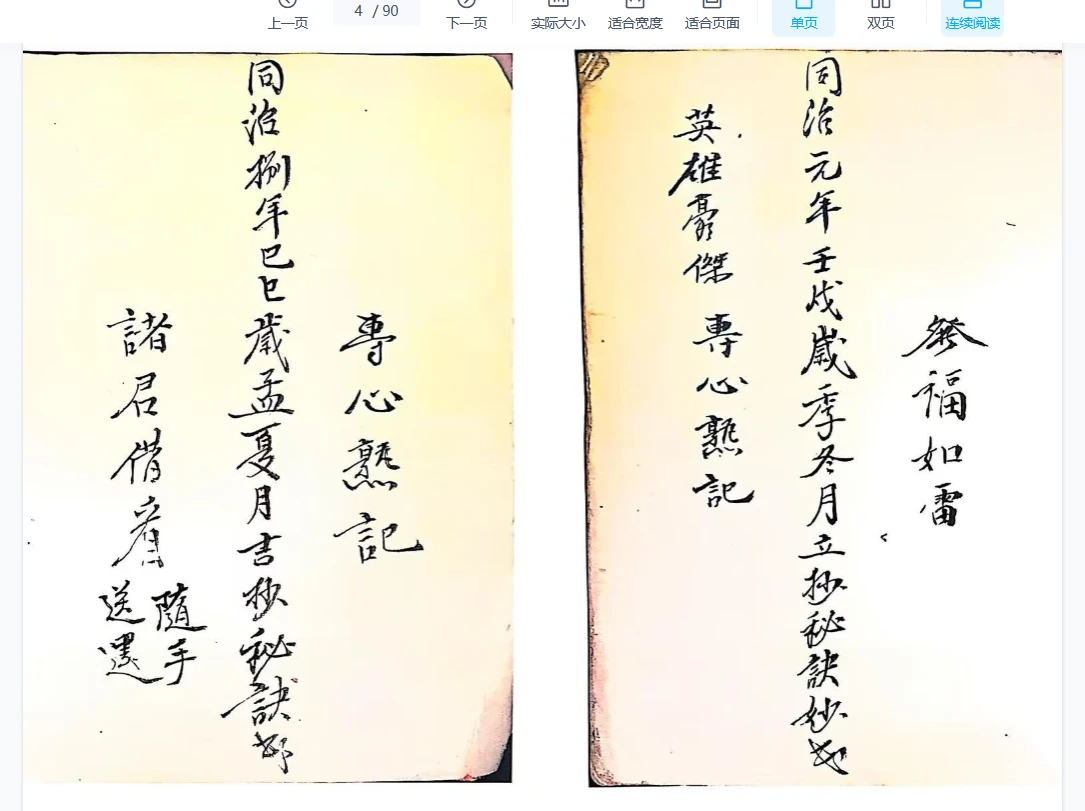 上一页
4 / 90
下一页
实际大小
适合宽度
适合页面
单页
双页
连续阅读
發福如雷
同治元年壬戌歲季冬月立抄秘訣妙
英雄豪傑 專心熟記
專心熟記
同治捌年己巳歲孟夏月吉抄秘訣
諸君借看隨手送還